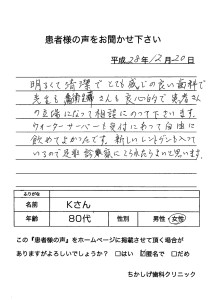 患者様の声をお聞かせ下さい
平成28年12月20日
明るくて清潔でとても感じの良い歯科で
先生も衛生士さんも良心的で患者さん
の立場になって相談にのって下さいます。
ウォーターサーバーも受付にあって自由に
飲めてよかったです。新しいレントゲンも入って
いるので是非診察にこられたらよいと思います。
ふりがな
名前 Kさん
年齢 80代 性別 男性 ・ 女性
この『患者様の声』をホームページに掲載させて頂く場合が
ありますがよろしいでしょうか? □はい ☑匿名で □だめ
ちかしげ歯科クリニック